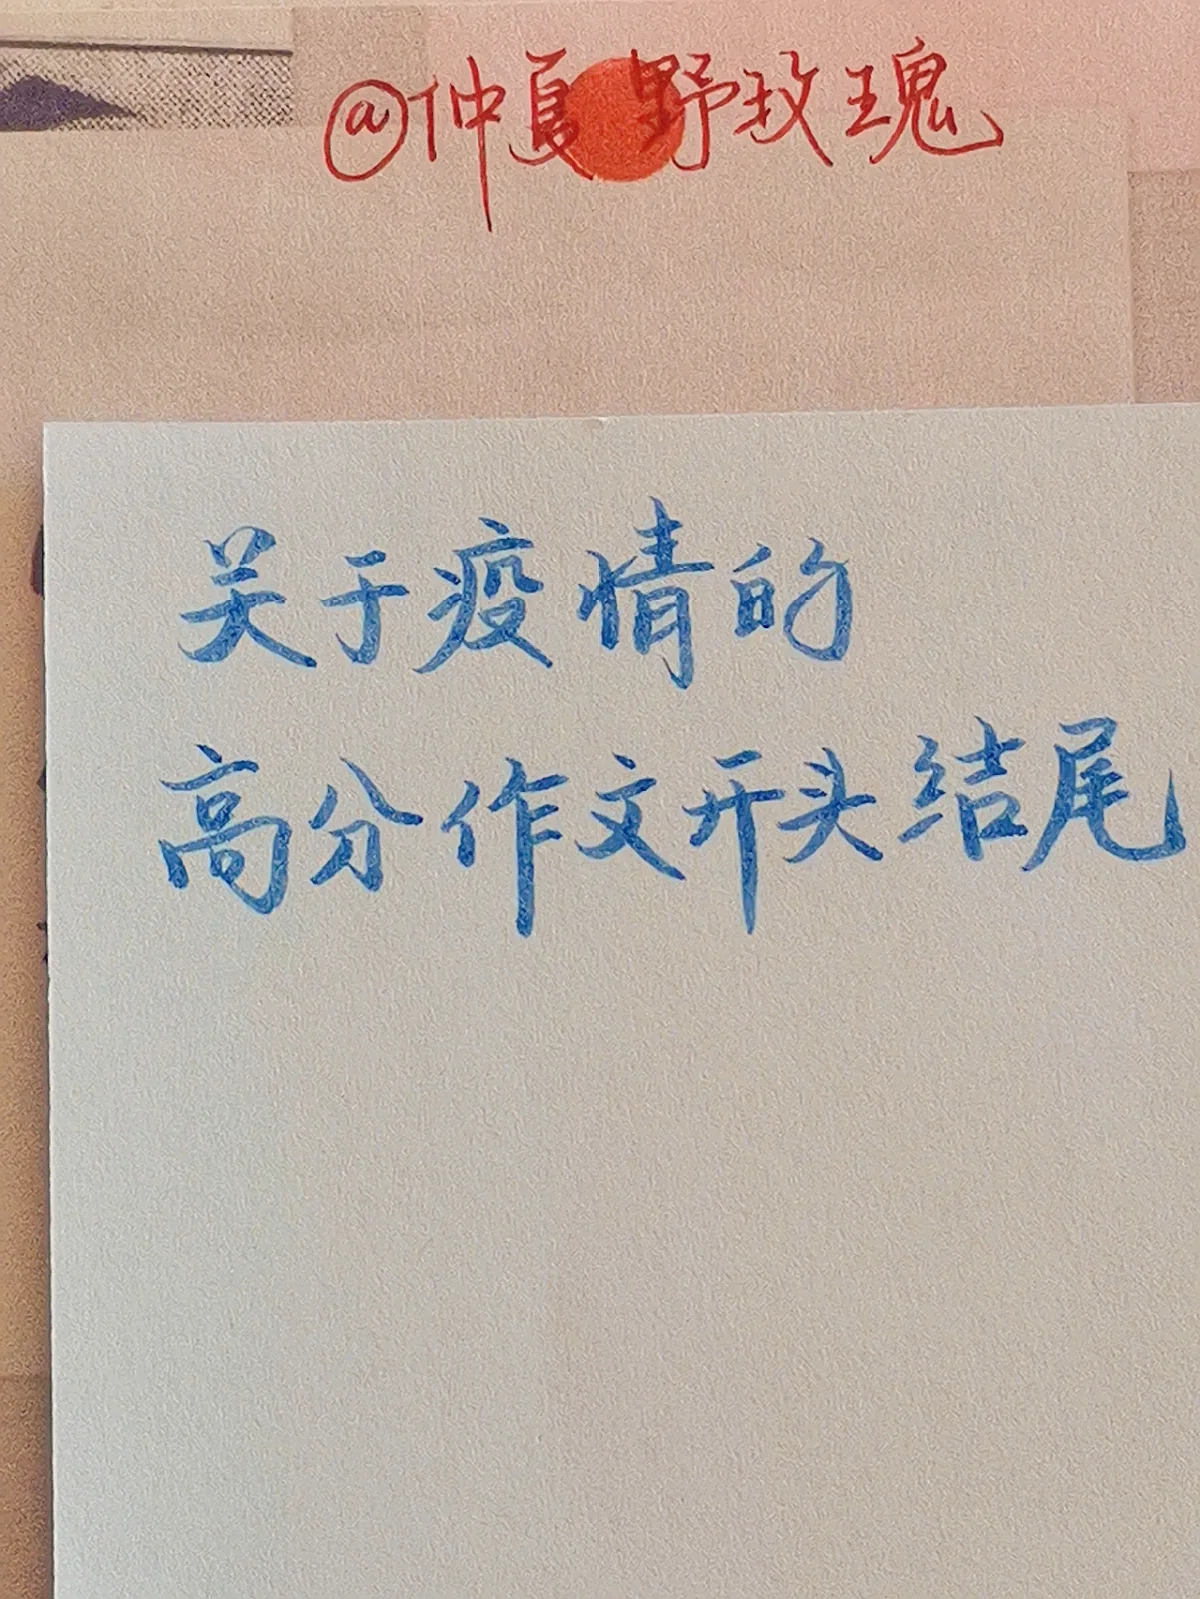 @仲夏野玫瑰
关于疫情的
高分作文开头结尾